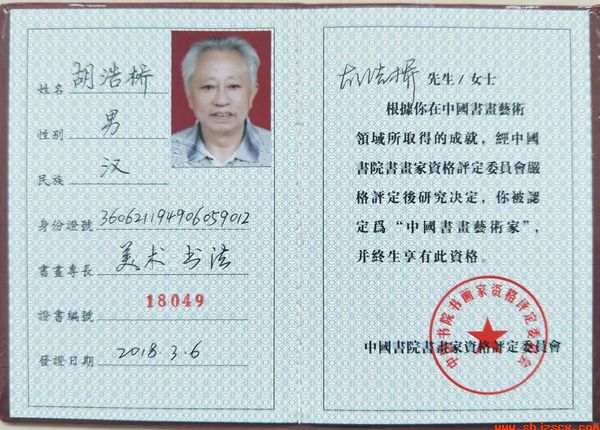 姓名 胡浩桥
性别 男
民族 汉
身份證號 360621194906059012
書畫專長 美术 书法
證書編號 18049
發證日期 2018.3.6
胡浩桥 先生/女士
根據你在中國書畫藝術
領域所取得的成就，經中國
書院書畫家資格評定委員會嚴
格評定後研究决定，你被認
定爲“中國書畫藝術家”，
并終生享有此資格。
中國書院書畫家資格評定委員會
中国书院书画家资格评定委员会